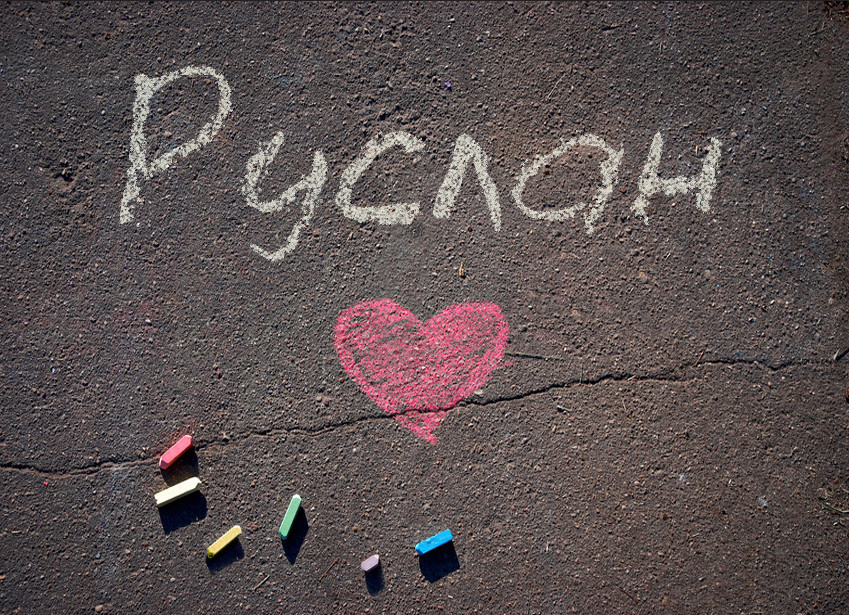 Руслан